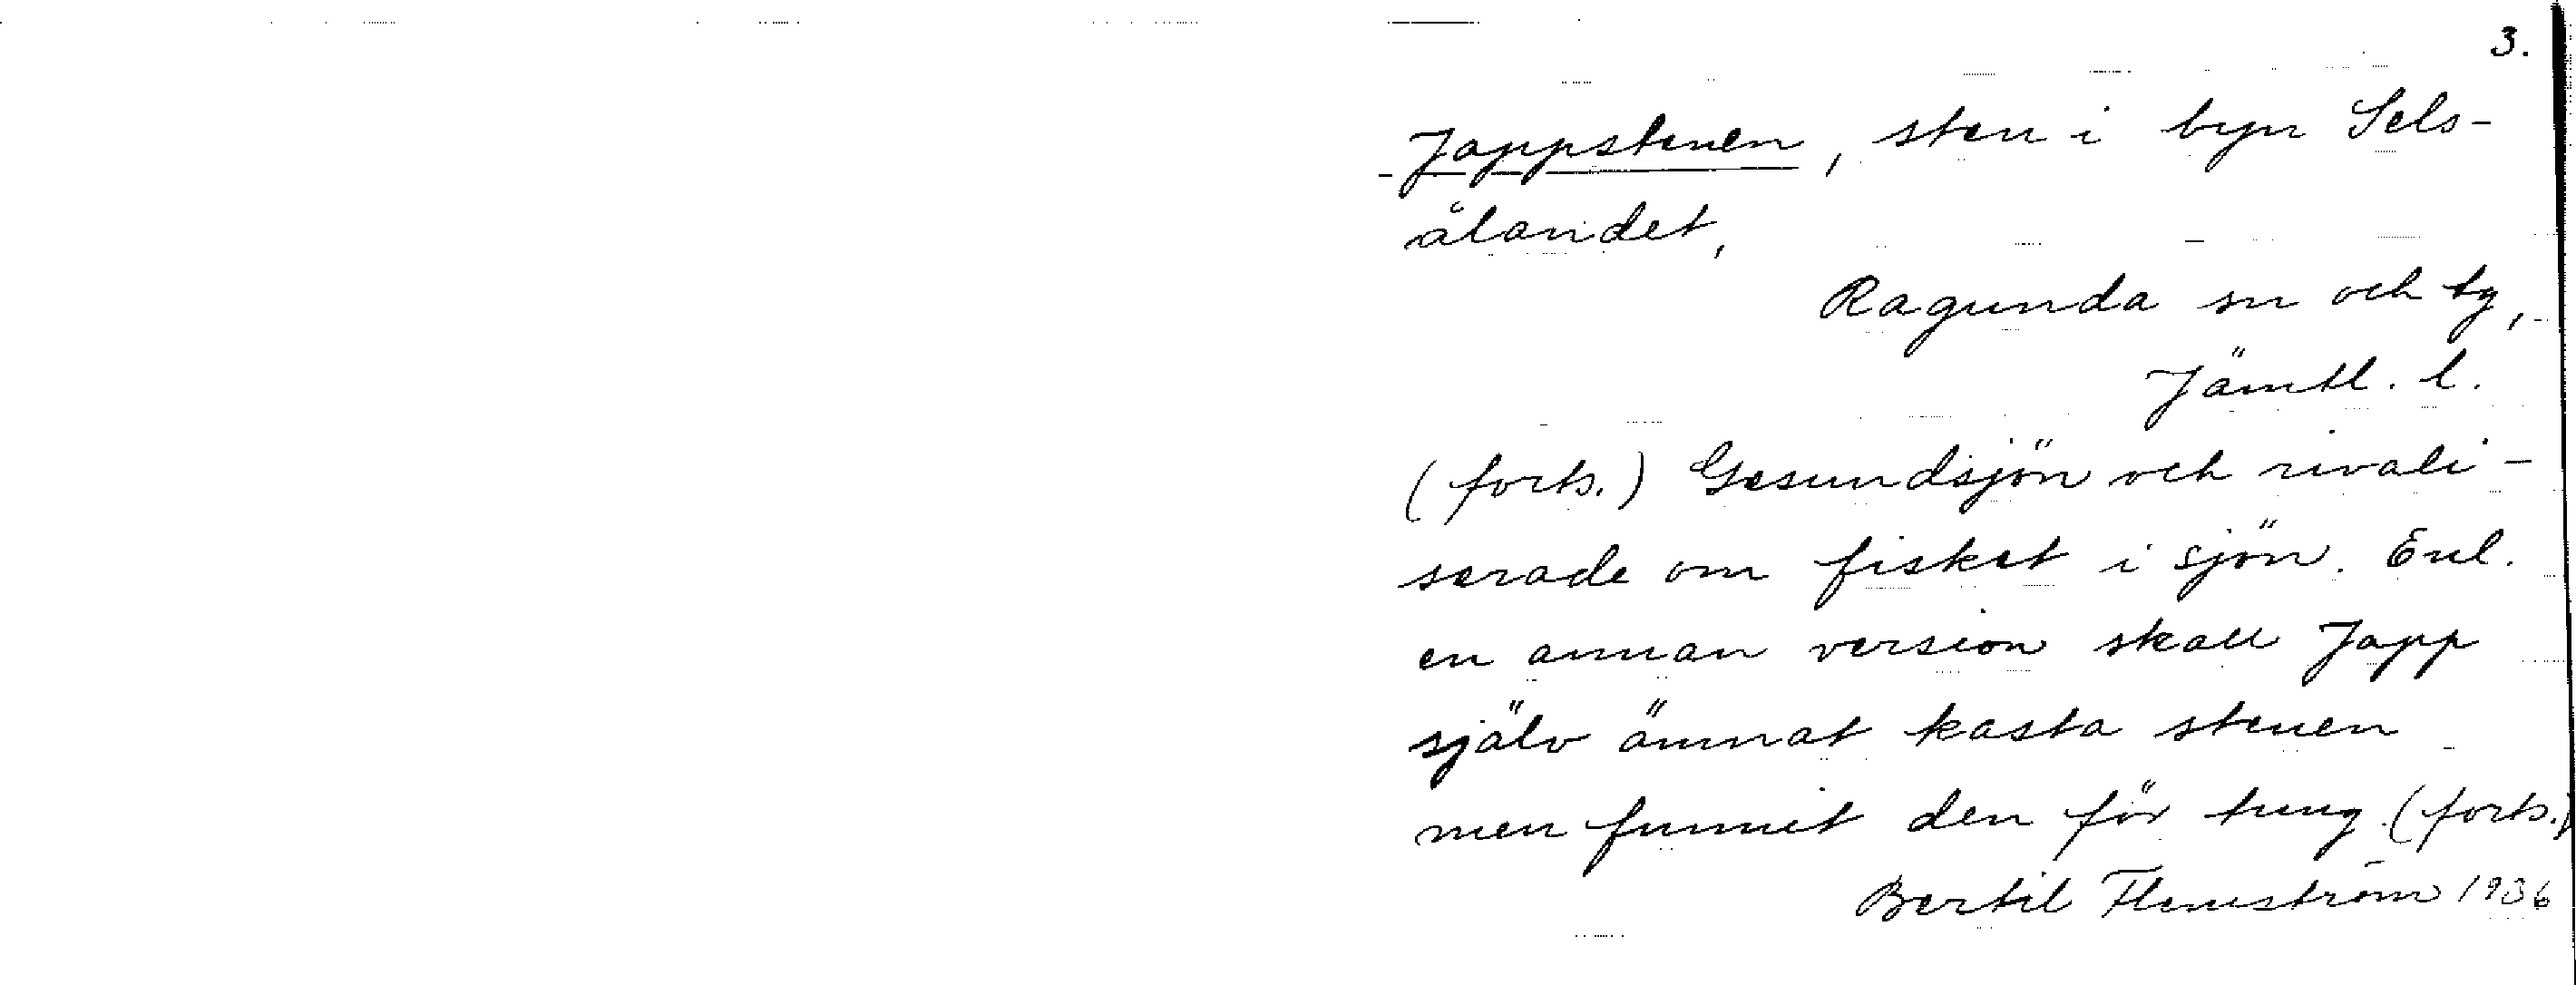 3.
Jappstenen, sten i byn Sels-
ålandet,
Ragunda sn och tg,
Jämtl. l.
(forts.) Gesundsjön och rivali-
serade om fisket i sjön. Enl.
en annan version skall Japp
själv ämnat kasta stenen
men funnit den för tung (forts.)
Bertil Flemström 1936